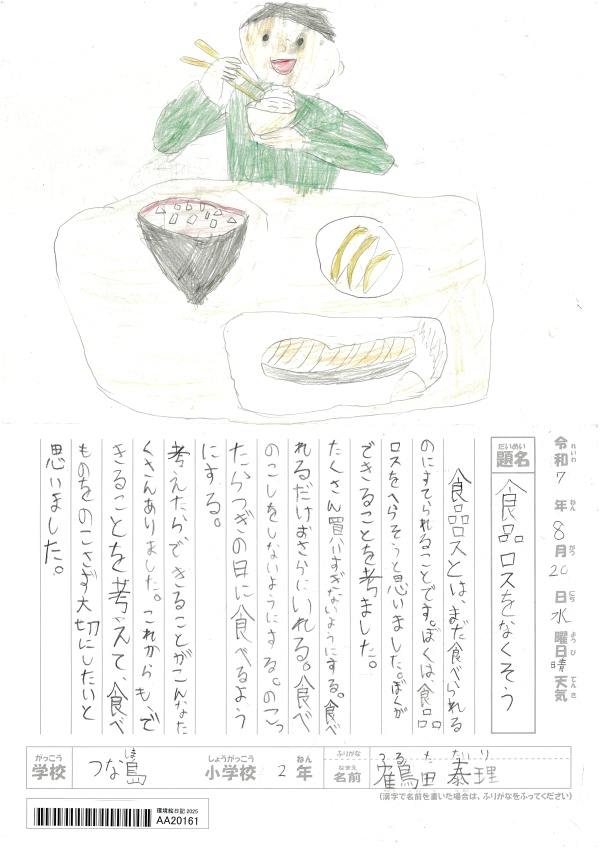 令和7年8月20日水曜日晴天気
れいわ ねん がつ にち ようび てんき
だいめい
題名
食品ロスをなくそう
食品ロスとは、まだ食べられる
のにすてられることです。ぼくは、食品
ロスをへらそうと思いました。ぼくが
できることを考ました。
たくさん買いすぎないようにする。食べ
れるだけおさらにいれる。食べ
のこしをしないようにする。のこっ
たらつぎの日に食べるよう
にする。
考えたらできることがこんなた
くさんありました。これからも、で
きることを考えて、食べ
ものをのこさず大切にしたいと
思いました。
がっこう
学校
しま
つな島
しょうがっこう
小学校
2
ねん
年
ふりがな
つるた たいり
なまえ
名前
鶴田 泰理
(漢字で名前を書いた場合は、ふりがなをふってください)
環境絵日記2025
AA20161